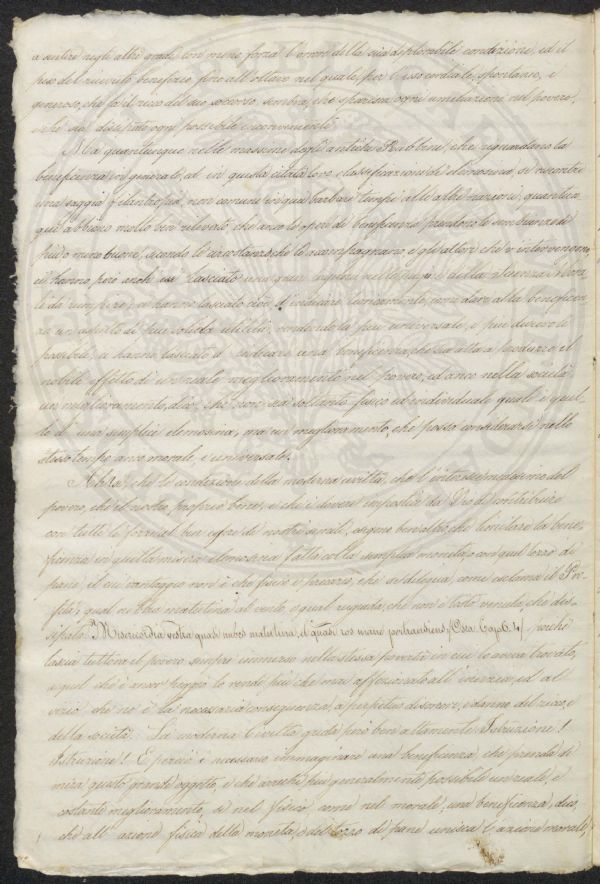 a sentire negli altri gradi con meno forza l'orrore della sua deplorabile condizione, ed il
peso del ricevuto beneficio fino all'ottavo nel quale, per l' spontaneo, e
generoso, che fa il ricco del suo soccorso, sembra, che sparisca ogni umiliazione nel povero,
e che sia dissipato ogni possibile
Ma quantunque nelle massime degli antichi Rabbini, che riguardano la
beneficenza in generale, ed in questa citata loro classificazione d'elemosina, si riscontri
una saggia filantropia, non comune in que' barbari tempi alle altre nazioni; quantun-
que abbiano molto ben rilevato, che anco le opere di beneficenza prendono le sembianze di
più o meno buone, secondo le circostanze che le accompagnano, e gli attori che v'intervengono,
ci hanno però anch' essi lasciato una gran nelle pagine della Scienza
da riempire; ci hanno lasciato cioè d'indicare come dare alla beneficen-
za un aspetto di più solida utilità, rendendola più universale, e più durevole
possibile; ci hanno lasciato d' indicare una beneficenza, che sia atta a produrre il
nobile effetto di un reale miglioramento nel povero, ed anco nella società
un miglioramento, dico, che non sia soltanto fisico ed individuale quale è quel-
lo di una semplice elemosina, ma un miglioramento, che possa considerarsi nello
stesso tempo anco morale, e universale.
che le condizioni della moderna civiltà, che l'interesse medesimo del
povero, che il nostro proprio bene, e che i doveri impostici da Dio di contribuire
con tutte le forze al ben essere de' nostri simili, esigono ben altro, che limitare la bene-
ficenza in quella misera elemosina fatta colla semplice moneta, o con quel tozzo di
pane, il cui vantaggio non è che fisico e precario, che si dilegua, come esclama il Pro-
feta, qual nube mattutina al vento, e qual rugiada, che non è tosto venuta, che dis-
sipata: "Misericordia vestra quasi nubes matutina, et quasi ros mane pertransiens, (Osea Cap. 6. 4) perchè
lascia tuttora il povero sempre immerso nella stessa povertà in cui lo aveva trovato,
e quel che è ancor peggio lo rende più che mai affezionato all' inerzia, ed al
vizio, che ne è la necessaria conseguenza, a perpetuo disonore, e danno del ricco, e
della società. La moderna Civiltà grida però ben altamente Istruzione!
Istruzione! E perciò è necessario immaginare una beneficenza, che prenda di
mira questo grande oggetto, e che arrechi più generalmente possibile un reale, e
costante miglioramento, sì nel fisico come nel morale, una beneficenza, dico,
che all' azione fisica della moneta, e del tozzo di pane unisca l'azione morale,